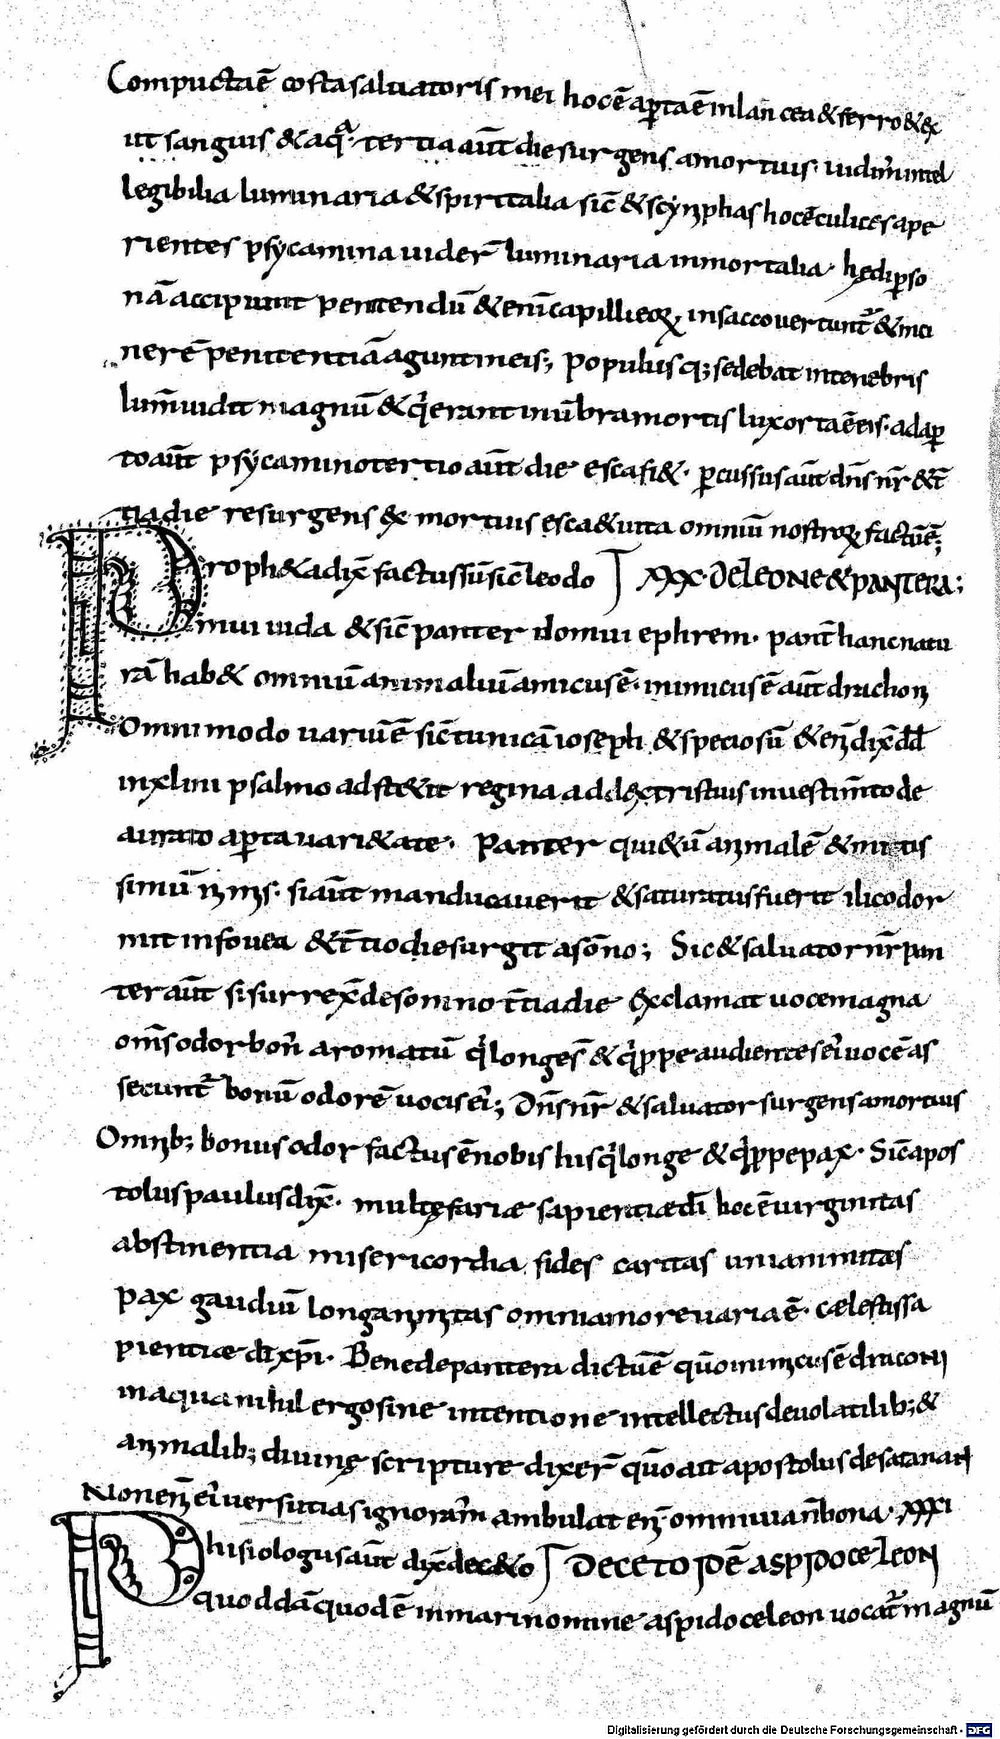 Compuctaē costa saluatoris mei hocē aꝑtaē in lancea & ferro & ex
iit sanguis & aqͣ· tertia aūt die surgens a mortuis· uidim̄ intel
legibilia luminaria & spiritalia sic̄ & scynphas hocē culices ape
rientes psycamina uider̄ luminaria inmortalia· hę diꝑso
nā accipiunt penitendū & enī capilli eoꝝ in sacco uertunt̄ & in ci
nerē penitentiā agunt in eis; populus qͥ sedebat in tenebris
lum̄ uidit magnū & qͥ erant in ūbra mortis lux orta ē eis· adaꝑ
to aūt psycamino tertio aūt die esca fi&· ꝑcussus aūt dn̄s nr̄ & t̄
tia die resurgens ex mortuis esca & uita omniū nostroꝝ factus ē;
Proph&a dix̄ factus sū sic̄ leo do XXX· DE LEONE & PANTERA;
mui iuda & sic̄ panter domui ephrem· pant̄ hanc natu
rā hab& omniū animaliū amicus ē· inimicus ē aūt drachon
Omnimodo variū ē sic̄ tunicā ioseph & speciosū & en̄ dix̄ dd̄
in xliiii psalmo adstetit regina a dextris tuis in uestim̄to de
aurato aꝑta uari&ate· Panter qui&ū animal ē & mitis
simū nimis· si aūt manducauerit & saturatus fuerit ilico dor
mit in fouea & t̄tio die surgit a som̄no; Sic & saluator nr̄ pan
ter aūt si surrex̄ de somno t̄tia die exclamat uoce magna
om̄s odor bon̄ aromatū qͥ longe s̄ & qͥ ꝓpe audientes ei uocē as
secunt̄ bonū odorē uocis ei; Dn̄s nr̄ & saluator surgens a mortuis
Omnib; bonus odor factus ē nobis his qͥ longe & qͥ ꝓpe pax· Sic̄ apos
tolus paulus dix̄· multęfariæ sapientiæ dī hoc ē uirginitas
abstinentia misericordia fides caritas unianimitas
pax gaudiū longanimitas omni amore uaria ē· cælestis sa
pientiæ dī xpī· Bene de pantera dictū ē quō inimicus ē draconi
in aqua nihil ergo sine intentione intellectus de uolatilib; &
animalib; diuinę scripture dixer̄ quō ait apostolus de satana n̄
N̄ ion en̄ ei uersutias ignoram̄ ambulat en̄ omni uia n̄ bona· XXXI
Phisiologus aūt dix̄ de c&o DE CETO IDĒ ASPIDOCELEON
quoddā quod ē in mari nomine aspidoceleon uocat̄ magnū
Digitalisierung gefördert durch die Deutsche Forschungsgemeinschaft - DFG